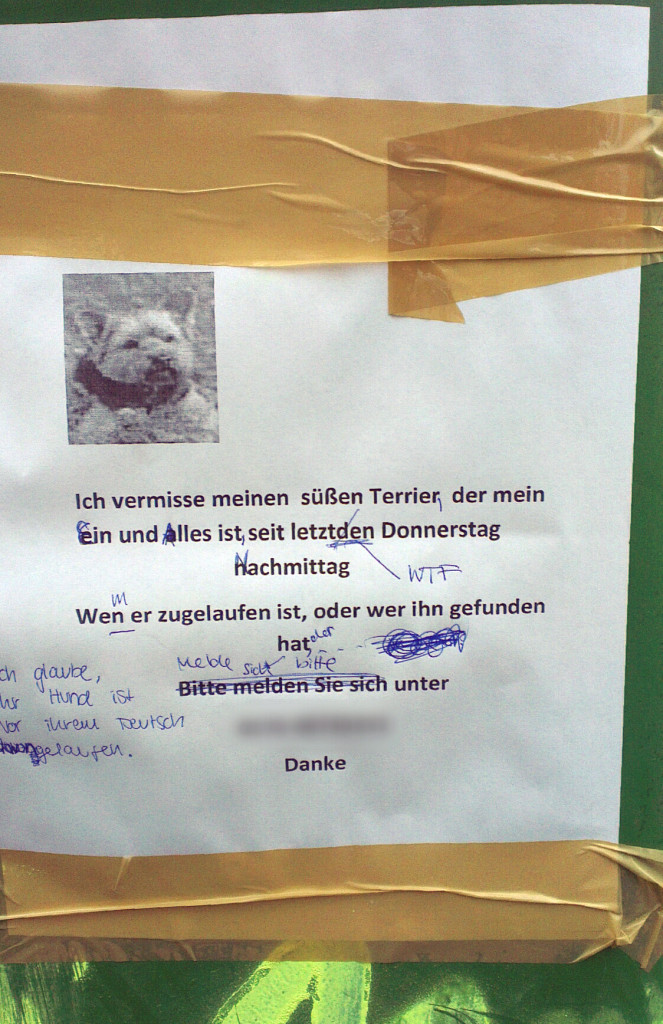 Ich vermisse meinen süßen Terrier, der mein
Ein und Alles ist, seit letztden Donnerstag
Nachmittag
WTF
m
Wen er zugelaufen ist, oder wer ihn gefunden
hat, der
Melde sich bitte
Bitte melden Sie sich unter
ch glaube,
Ihr Hund ist
vor ihrem Deutsch
gelaufen.
Danke